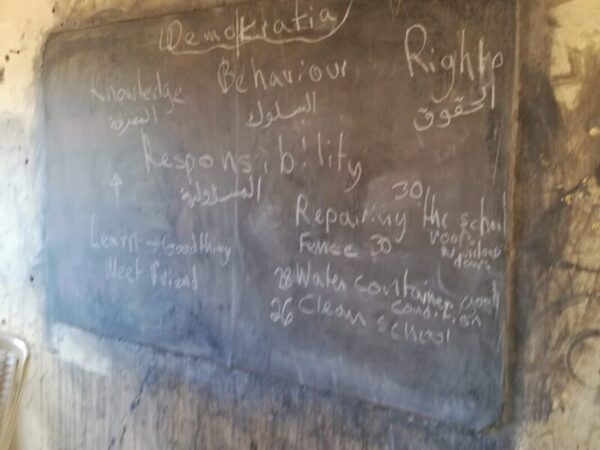 Demokratia
Knowledge Behaviour Rights
المعرفة السلوك الحقوق
Responsibility
المسؤولية
Learn → Good thing
Meet Friend
30
Repairing the school
roofs
windows
doors
Fence 30
28 Water container good
condition
26 Clean school